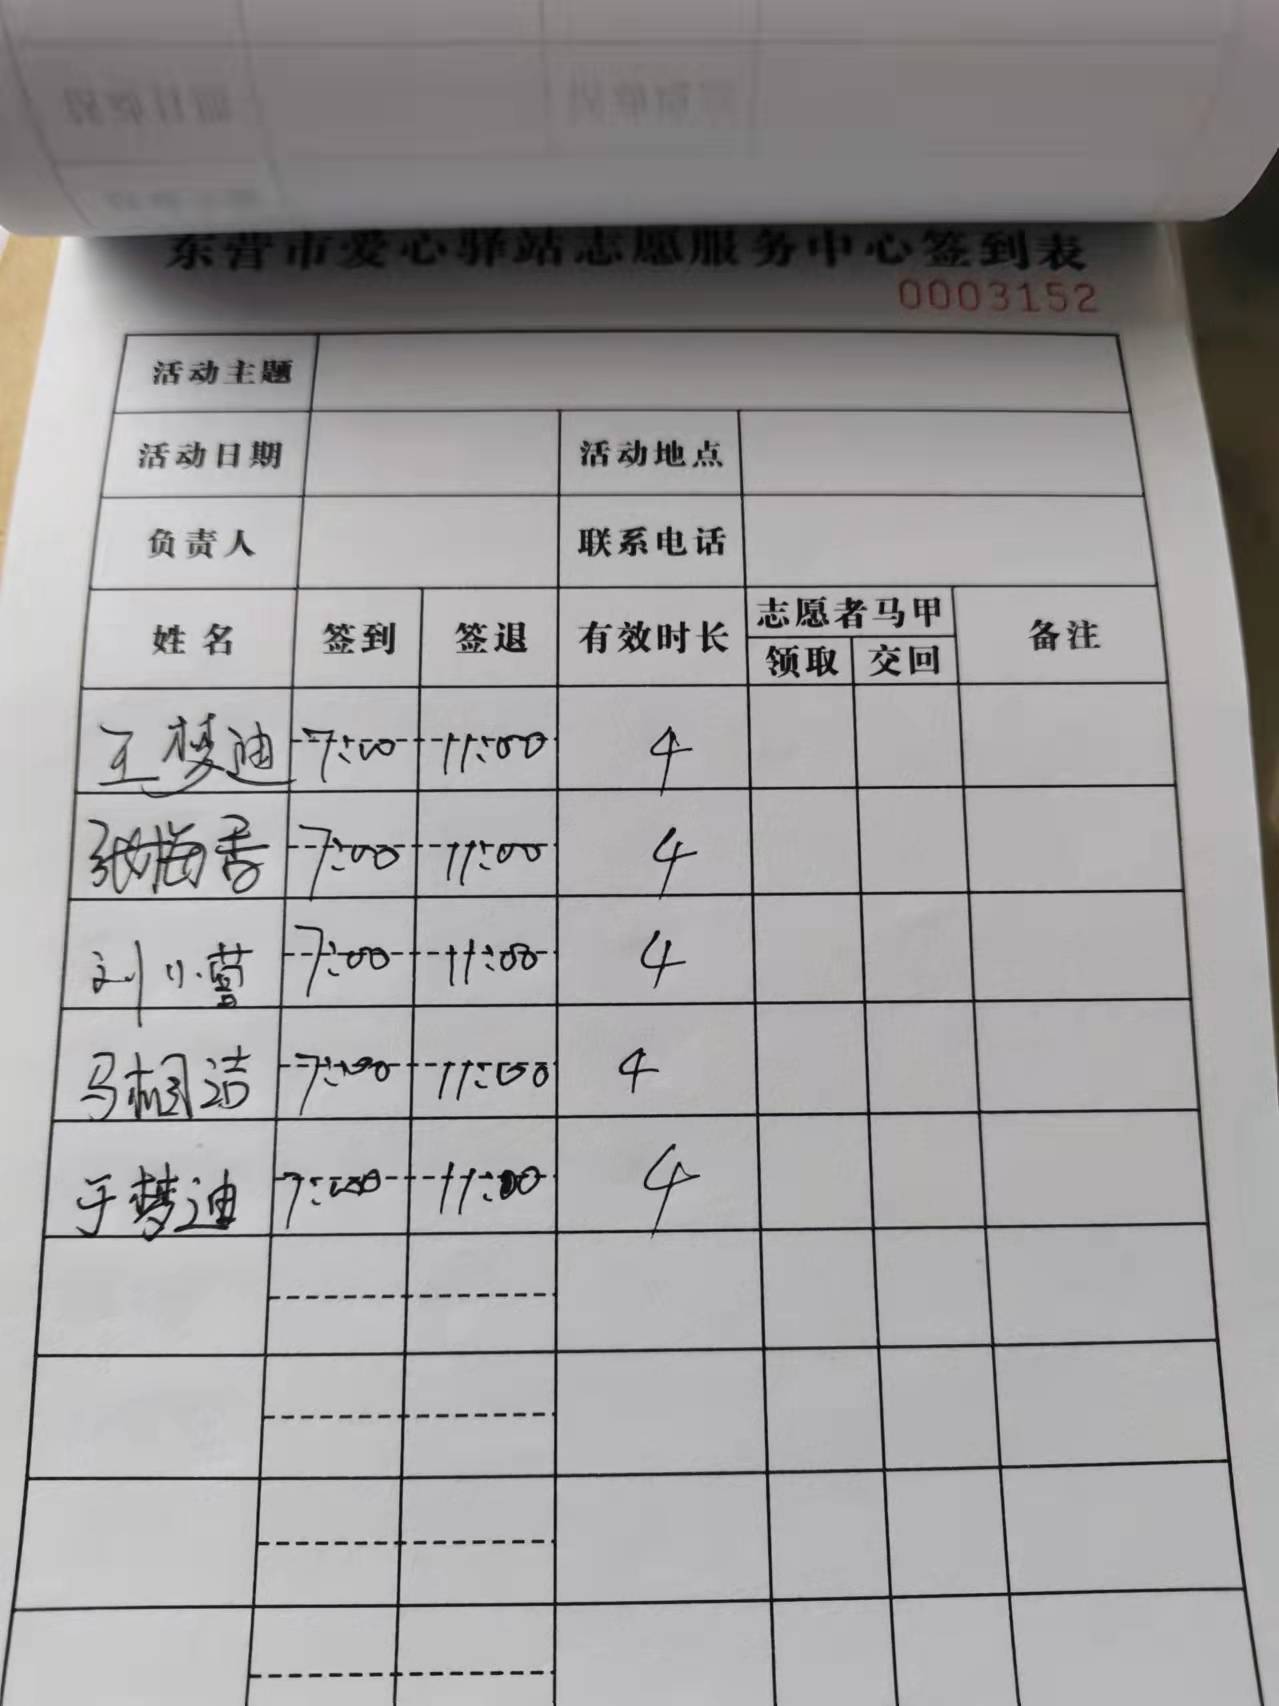 东营市爱心驿站志愿服务中心签到表
0003152
活动主题
活动日期 活动地点
负责人 联系电话
姓名 签到 签退 有效时长 志愿者马甲 备注
领取 交回
王梦迪 7:00 11:00 4
张梅香 7:00 11:00 4
刘小营 7:00 11:00 4
马桐洁 7:00 11:00 4
于梦迪 7:00 11:00 4